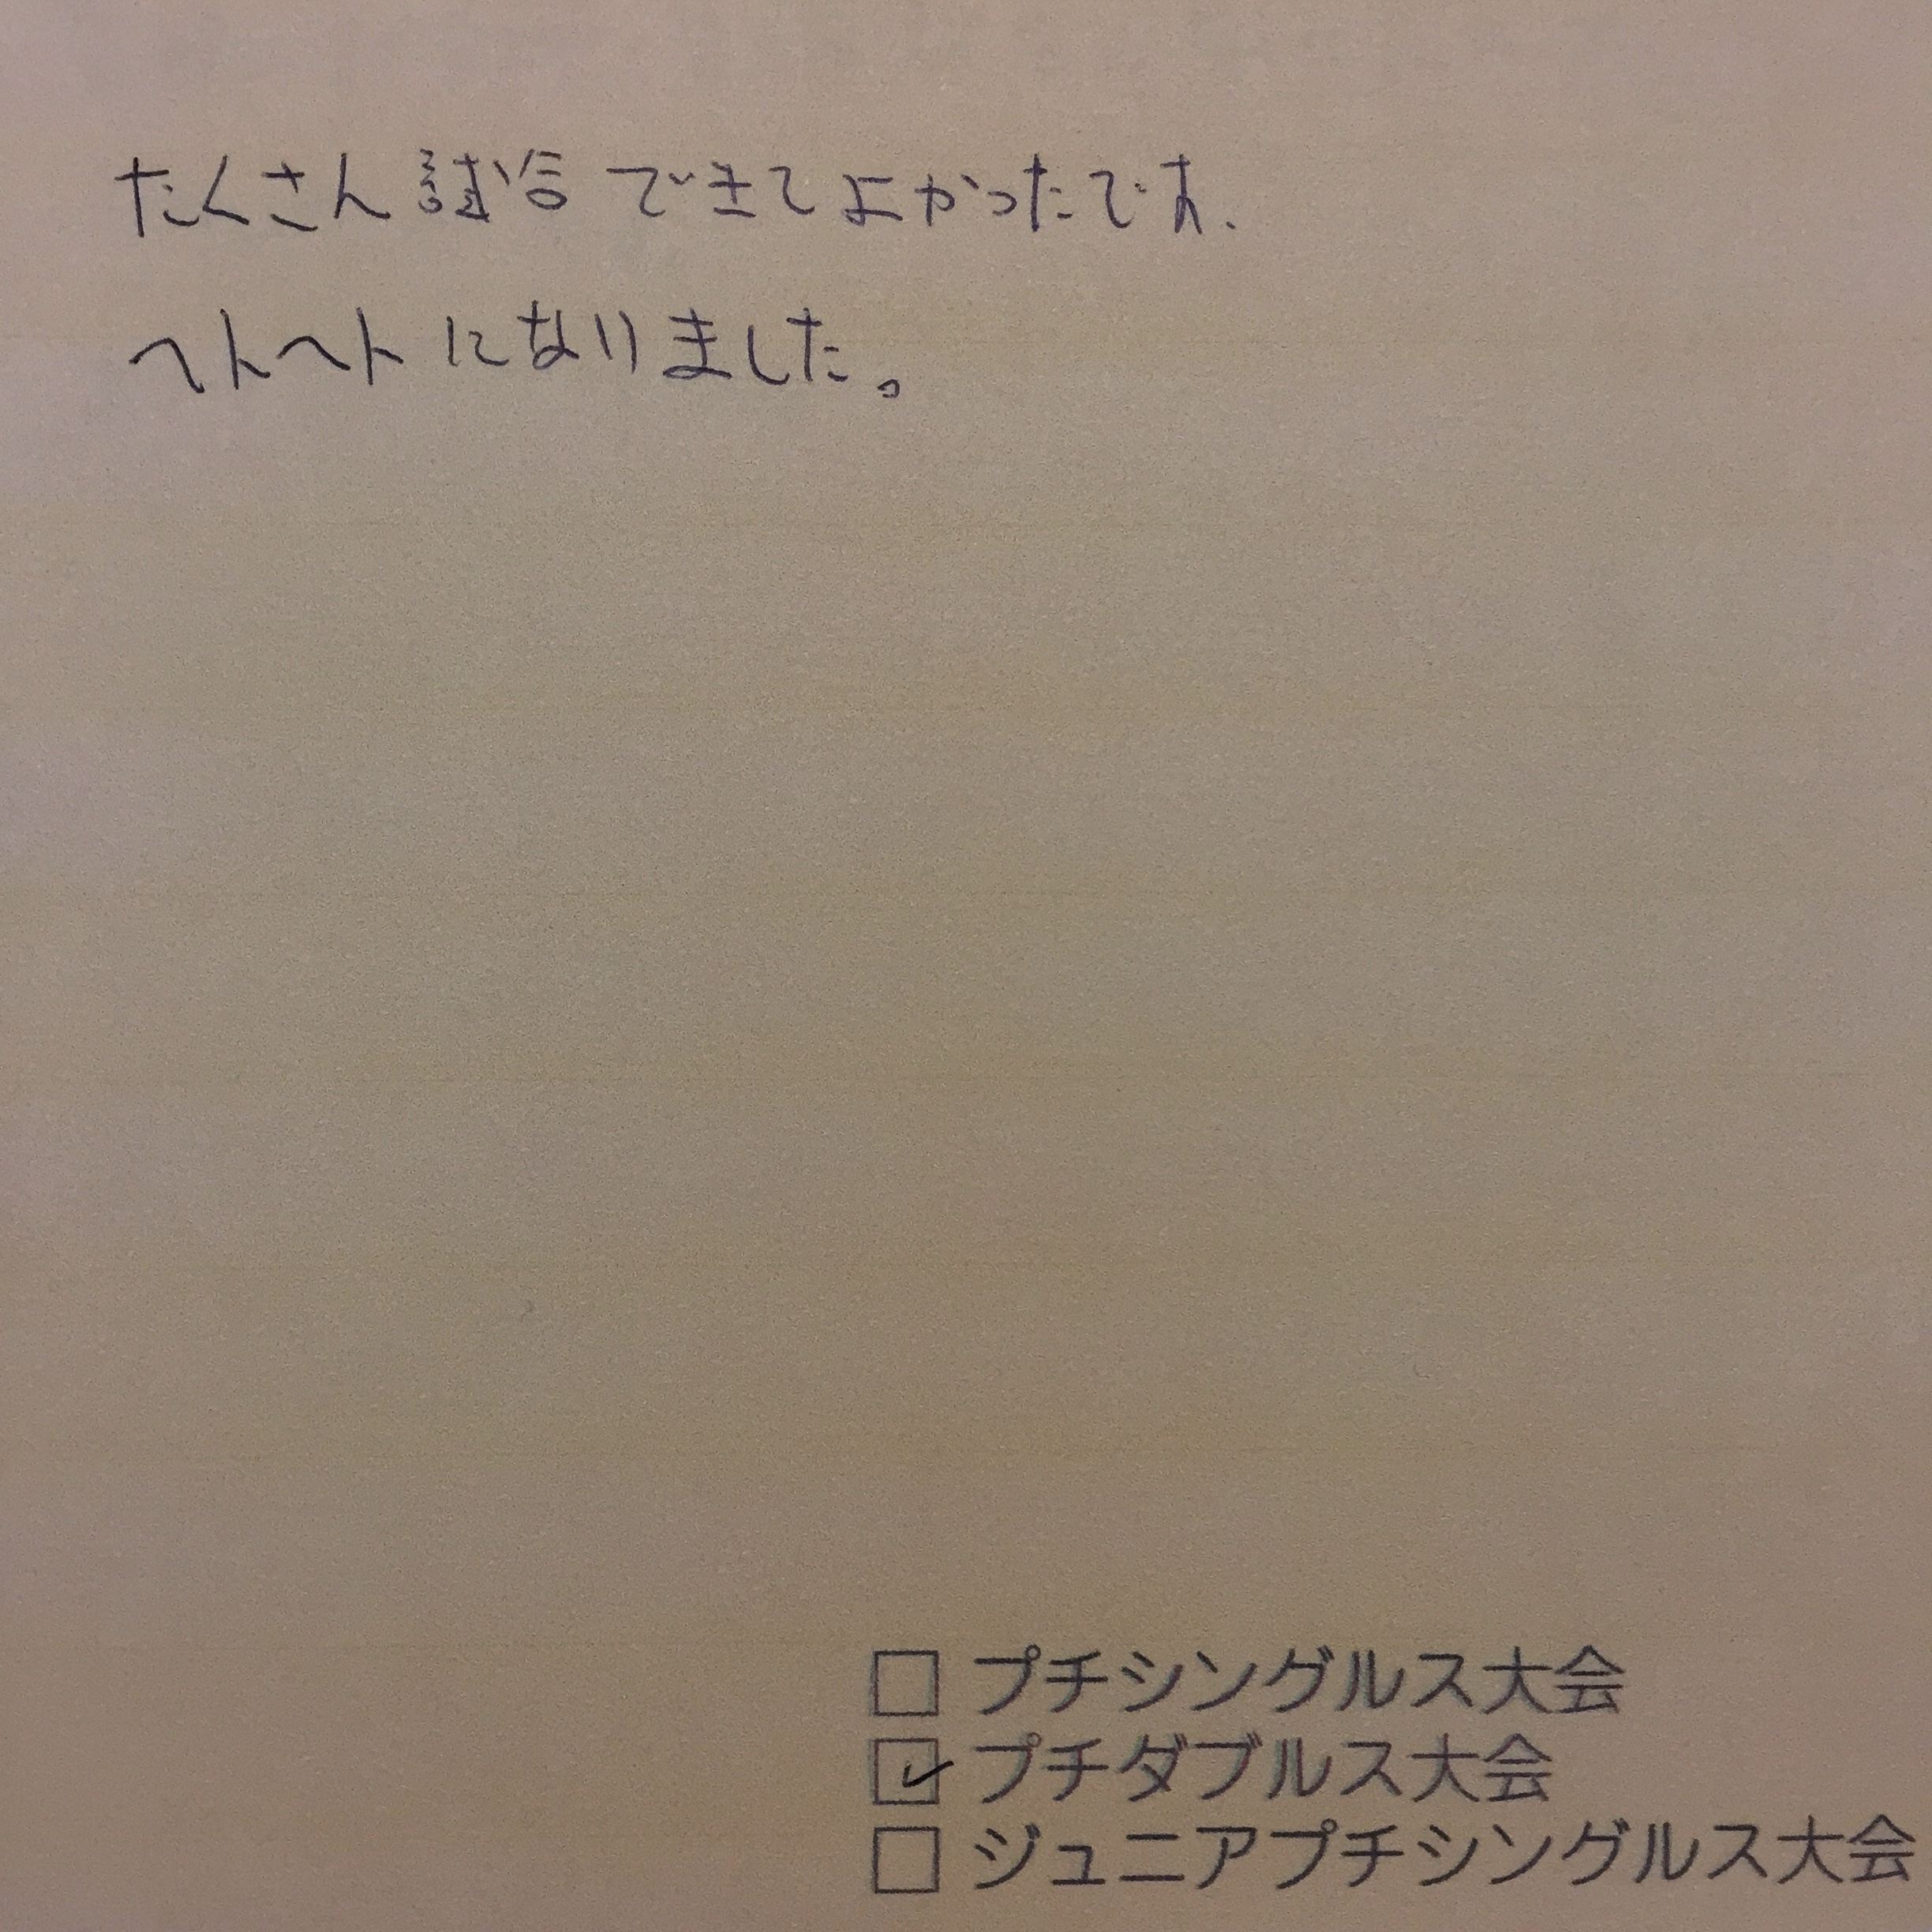 たくさん試合できてよかったです.
ヘトヘトになりました。
□ プチシングルス大会
☑ プチダブルス大会
□ ジュニアプチシングルス大会